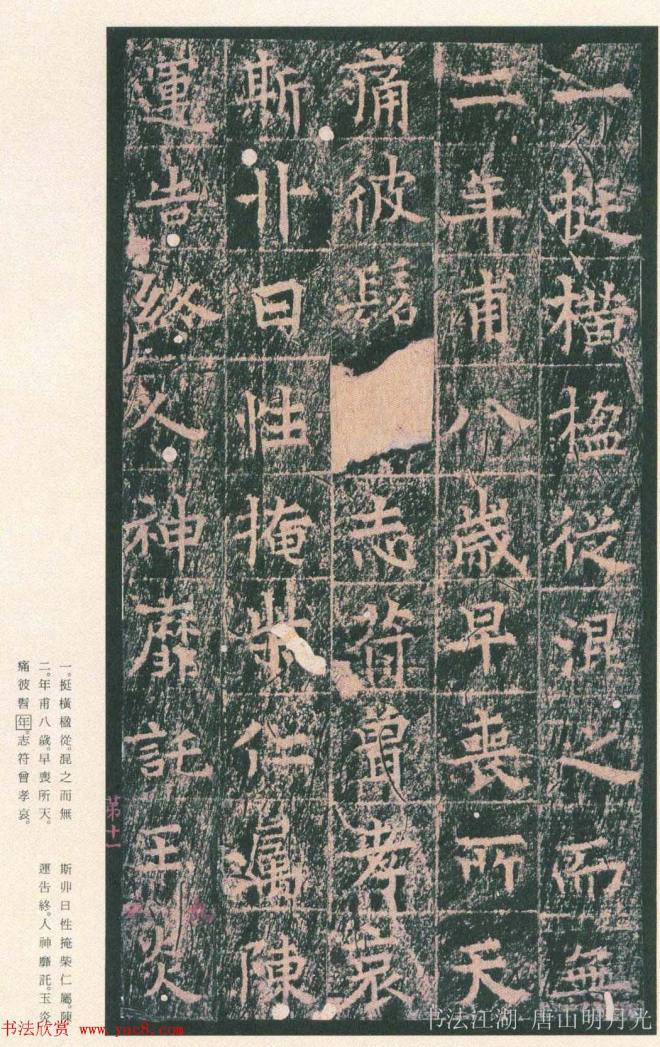 一挺橫楹從混之而無
二年甫八歲早喪所天
痛彼髫志符曾孝哀
斯丱日性掩柴仁屬陳
運告終人神靡託玉炎
第十一
一。挺橫楹從。混之而無
二。年甫八歲。早喪所天。
痛彼髫年。志符曾孝哀。
斯丱日性掩柴仁。屬陳
運告終。人神靡託。玉炎
书法欣赏 www.yac8.com
书法江湖-唐山明月光